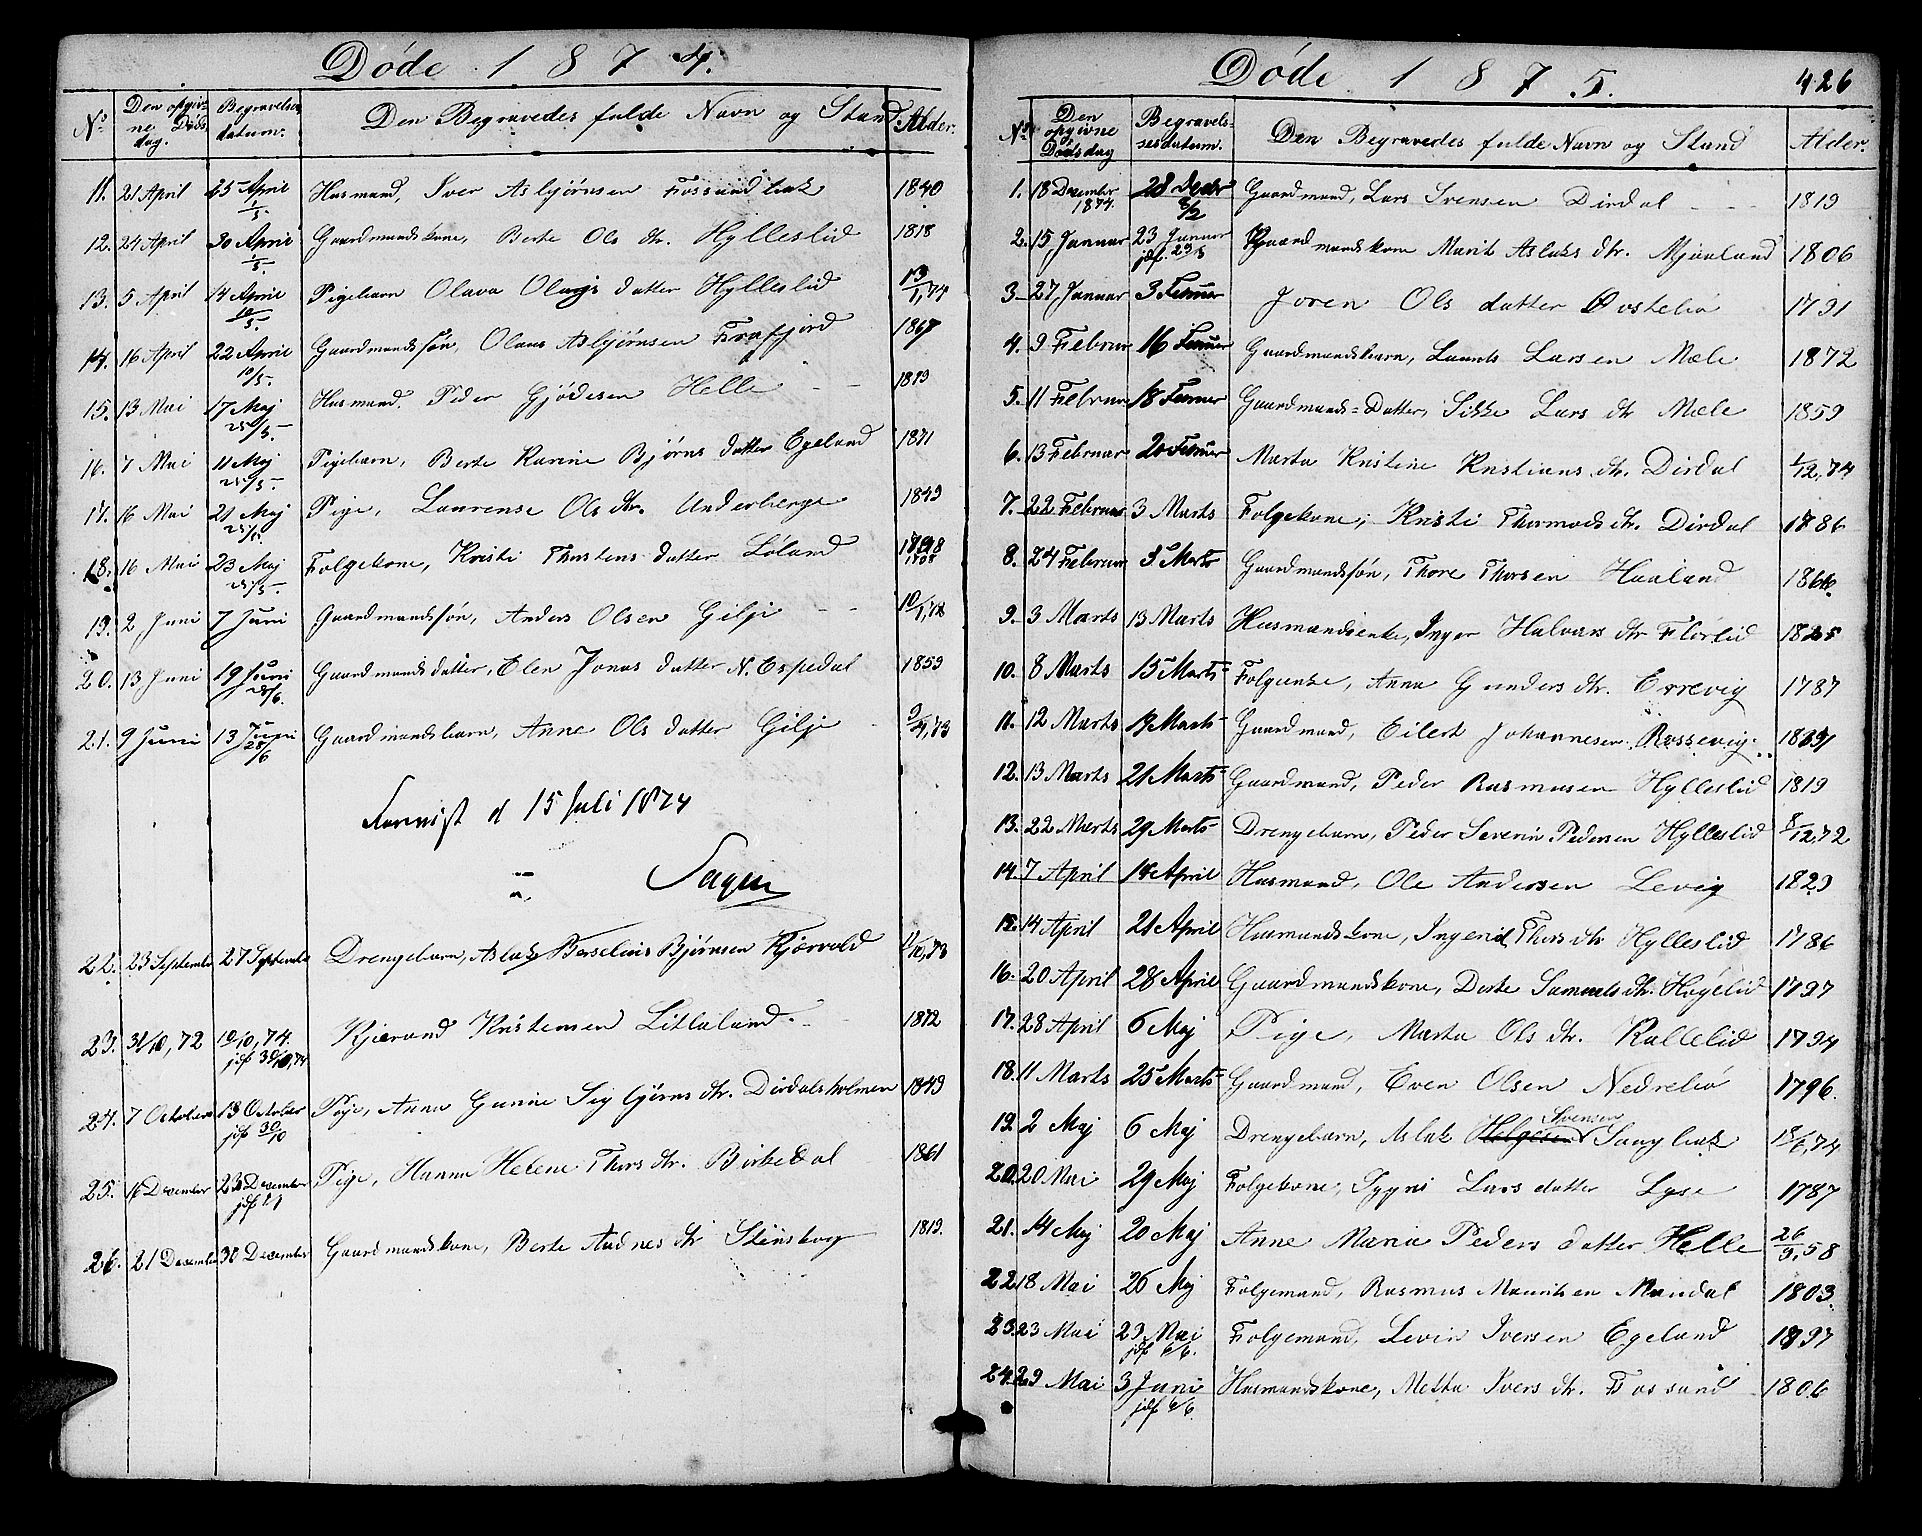 Døde 1874.
No Den opgivne Dødsdag. Begravelsesdatum. Den Begravedes fulde Navn og Stand Alder.
11. 21 April 25 April 1/5. Husmand, Iver Asbjørnsen Fossandbak 1840
12. 24 April 30 April 1/5. Gaardmandskone, Berte Ols dtr. Hylleslid 1818
13. 5 April 14 April 10/5. Pigebarn Olava Olavs datter Hylleslid 13/1,74
14. 16 April 22 April 10/5. Gaardmandssøn, Olaus Asbjørnsen Frafjord 1867
15. 13 Mai 17 Maj 25/5. Husmand, Peder Gjødesen Helle 1819
16. 7 Mai 11 Maj 25/5. Pigebarn, Berte Karine Bjørns datter Egeland 1871
17. 16 Mai 21 Maj 25/5. Pige, Laurense Ols dtr. Underberge 1849
18. 16 Mai 23 Maj 25/5. Folgekone, Kristi Thorstens datter Løland
19. 2 Juni 7 Juni Gaardmandssøn, Anders Olsen Gilje 10/1,72
20. 13 Juni 19 Juni 28/6. Gaardmandsdatter, Elen Jonas datter N. Espedal 1859
21. 9 Juni 13 Juni 28/6 Gaardmandsbarn, Anne Ols datter Gilje 9/4,73
d 15 Juli 1874
22. 23 September 27 September Drengebarn, Aslak Berselius Bjørnsen Kjærvold 11/12,73
23. 31/10,72 10/10,74. jdf 30/10,74 Kjærand Kristensen Litlaland. 1872
24. 7 October 13 October jdf 30/10 Pige, Anna Gurine Sigbjørns dtr. Dirdalsholmen 1849
25. 16 December 23 December Pige, Hanna Helene Thors dtr. Birkedal 1861
26. 21 December 30 December Gaardmandskone, Berte Audnes dtr Stensborg 1819.
Døde 1875. 426
No Den opgivne Dødsdag Begravelsesdatum. Den Begravedes fulde Navn og Stand Alder.
1. 18 December 1874. 28 Decbr 8/2 Gaardmand, Lars Svensen Dirdal 1819
2. 15 Januar 23 Januar Gaardmandskone Marit Aslaks dtr. Mjaaland 1806
3 27 Januar 3 Februar Joren Ols datter Østebø 1791
4. 9 Februar 16 Februar Gaardmandsbarn, Laurits Larsen Mæle 1872
5. 11 Februar 18 Februar Gaardmands=Datter, Sikke Lars dtr Mæle 1859
6. 13 Februar 20 Februar Marta Kristine Kristians dtr. Dirdal 1/12,74
7. 22 Februar 3 Marts Folgekone, Kristi Thormods dtr. Dirdal 1786
8. 24 Februar 3 Marts Gaardmandssøn, Thore Thorsen Haaland 1866.
9. 3 Marts 13 Marts Husmandsenke, Inger Halvars dtr Flørlid 1825
10. 8 Marts 15 Marts Folgeenke, Anna Gunders dtr. Errevig 1787
11. 12 Marts 19 Marts Gaardmand, Eilert Johannesen Rossevig.
12. 13 Marts 21 Marts Gaardmand, Peder Rasmusen Hylleslid 1819
13. 22 Marts 29 Marts Drengebarn, Peder Severin Pedersen Hylleslid 8/12,72
14. 7 April 14 April Husmand, Ole Andersen Levig 1829
15. 14 April 21 April Husmandskone, Ingerid Thors dtr Hylleslid 1786
16. 20 April 28 April Gaardmandskone, Dorte Samuels dtr. Høgelid 1797
17. 28 April 6 Maj Pige, Marta Ols dtr. Kallelid 1794
18. 11 Marts 25 Marts Gaardmand, Even Olsen Nedrebø 1796.
19. 2 Maj 6 Maj Drengebarn, Aslak Helgesen Svensen 18/6,74
20. 20 Mai 29 Maj Folgekone, Sygni Lars datter Lyse 1787
21. 14 Maj 20 Maj Anne Maria Peders datter Helle 26/9,58
22. 18 Mai 26 Maj Folgemand, Rasmus Mauritsen Mandal 1803
23. 23 Mai 29 Mai jdf 6/6. Folgemand, Levin Iversen Egeland 1797
24. 29 Mai 3 Juni jdf 6/6 Husmandskone, Metta Ivers dtr. Fossand 1806